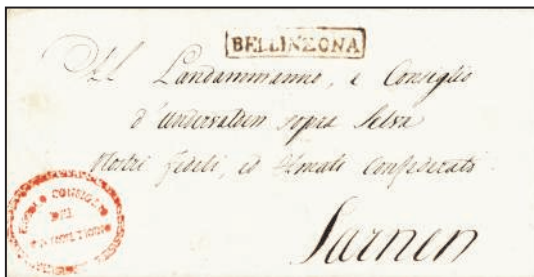 BELLINZONA
Al Landammanno, e Consiglio
d'undervalden sopra Selva
Nostri fedeli, ed Amati Confederati.
Sarnen
CONSIGLIO
DEL